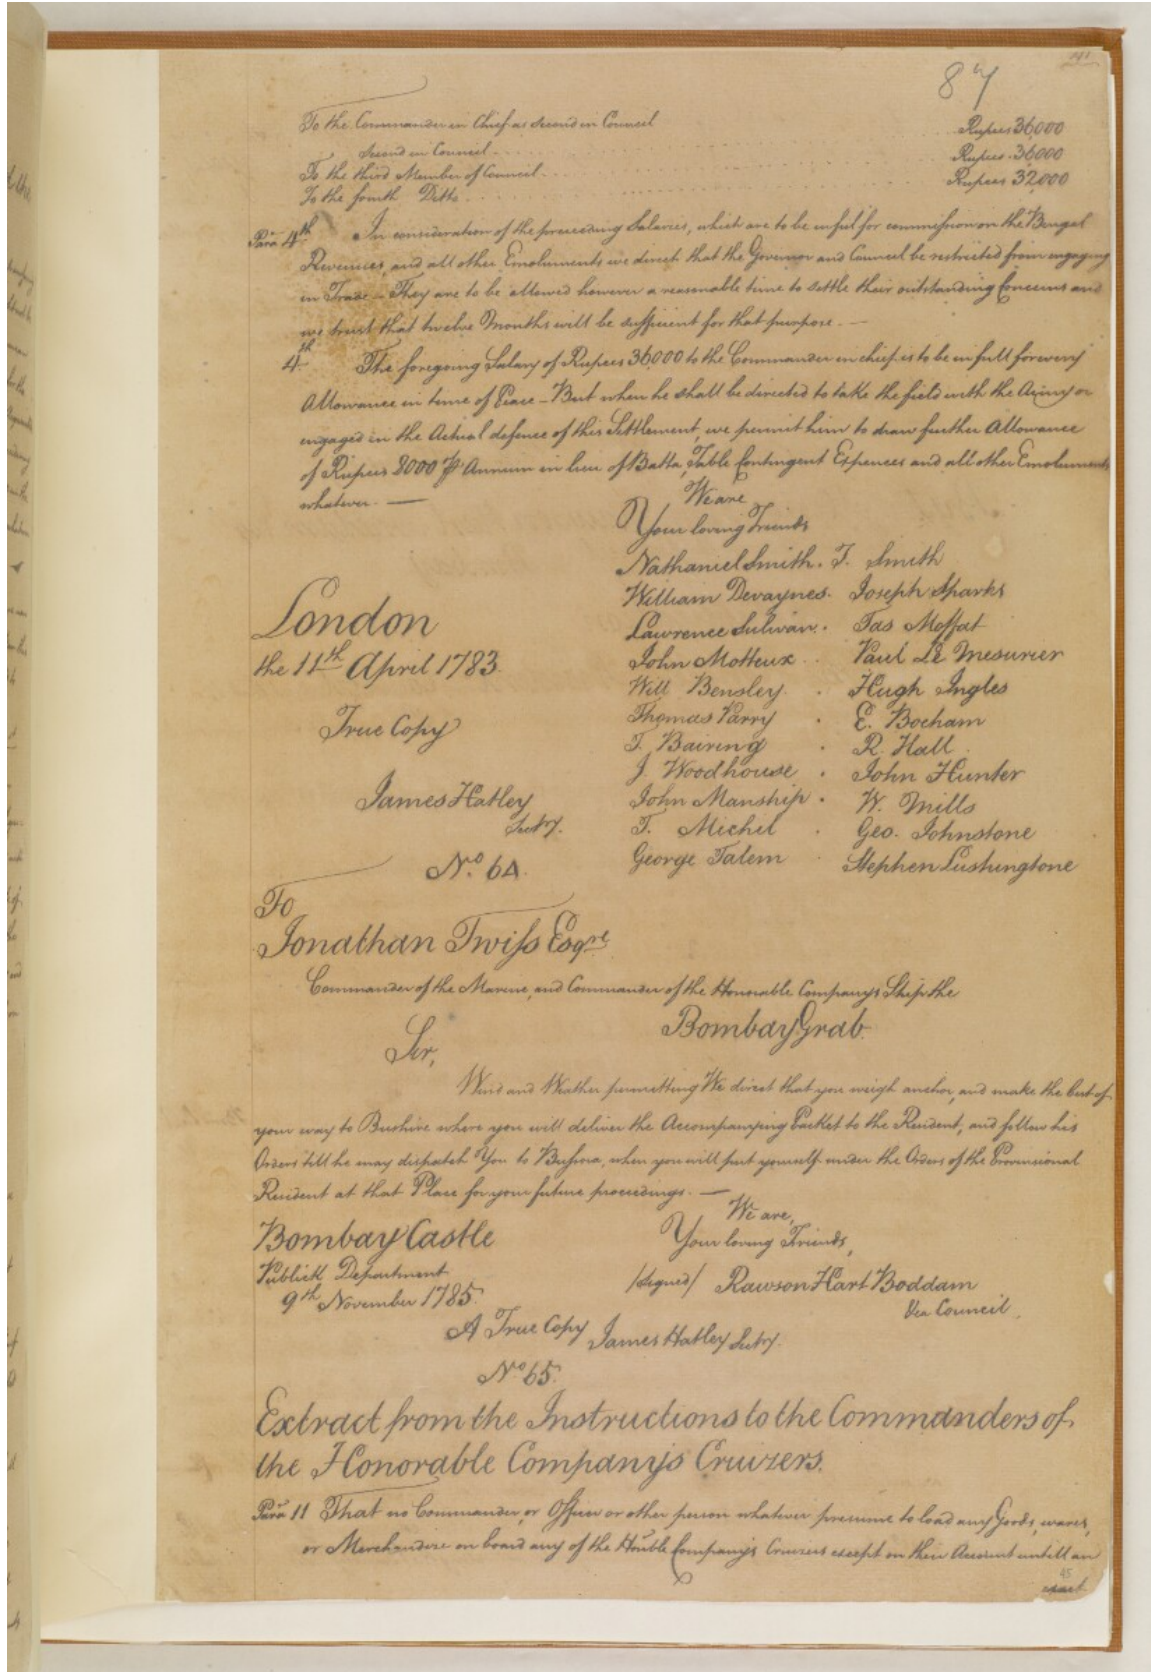 87
To the Commander in Chief as Second in Council . . . Rupees 36,000
Second in Council . . . Rupees 36,000
To the third Member of Council . . . Rupees 32,000
To the fourth Ditto . . .
Para 4th In consideration of the preceeding Salaries, which are to be in full for commission on the Bengal
Revenues, and all other Emoluments we direct that the Governor and Council be restricted from engaging
in Trade – They are to be allowed however a reasonable time to settle their outstanding Concerns and
we trust that twelve Months will be sufficient for that purpose. —
4th The foregoing Salary of Rupees 36,000 to the Commander in chief is to be in full for every
Allowance in time of Peace – But when he shall be directed to take the field with the Army or
engaged in the Actual defence of this Settlement, we permit him to draw further Allowance
of Rupees 8000 P Annum in lieu of Batta, Table Contingent Expences and all other Emoluments
whatever. —
We are
Your loving Friends
Nathaniel Smith. T. Smith
William Devaynes. Joseph Sparks
London
Lawrence Sulivan. Jas Moffat
the 11th April 1783.
John Motteux . Paul Le Mesurier
Will Bensley . Hugh Ingles
True Copy
Thomas Parry . E. Bocham
T. Bairing . R. Hall
J. Woodhouse . John Hunter
James Hatley
John Manship . W. Mills
Secty.
T. Michil . Geo. Johnstone
No. 64.
George Tatem . Stephen Lushingtone
To
Jonathan Twiss Esqre
Commander of the Marine, and Commander of the Honorable Company's Ship the
Bombay Grab.
Sir,
Wind and Weather permitting We direct that you weigh anchor, and make the best of
your way to Bushire where you will deliver the Accompanying Packet to the Resident, and follow his
Orders till he may dispatch You to Bussora, when you will put yourself under the Orders of the Provisional
Resident at that Place for your future proceedings. —
We are,
Bombay Castle
Your loving Friends,
Publick Department
/Signed/ Rawson Hart Boddam
9th November 1785.
Council.
A True Copy James Hatley Secty.
No 65.
Extract from the Instructions to the Commanders of
the Honorable Company's Cruizers.
Para 11 That no Commander, or Officer or other person whatever presume to load any Goods, wares,
or Merchandize on board any of the Honble Company's Cruizers except on their Account untill an
45
exact